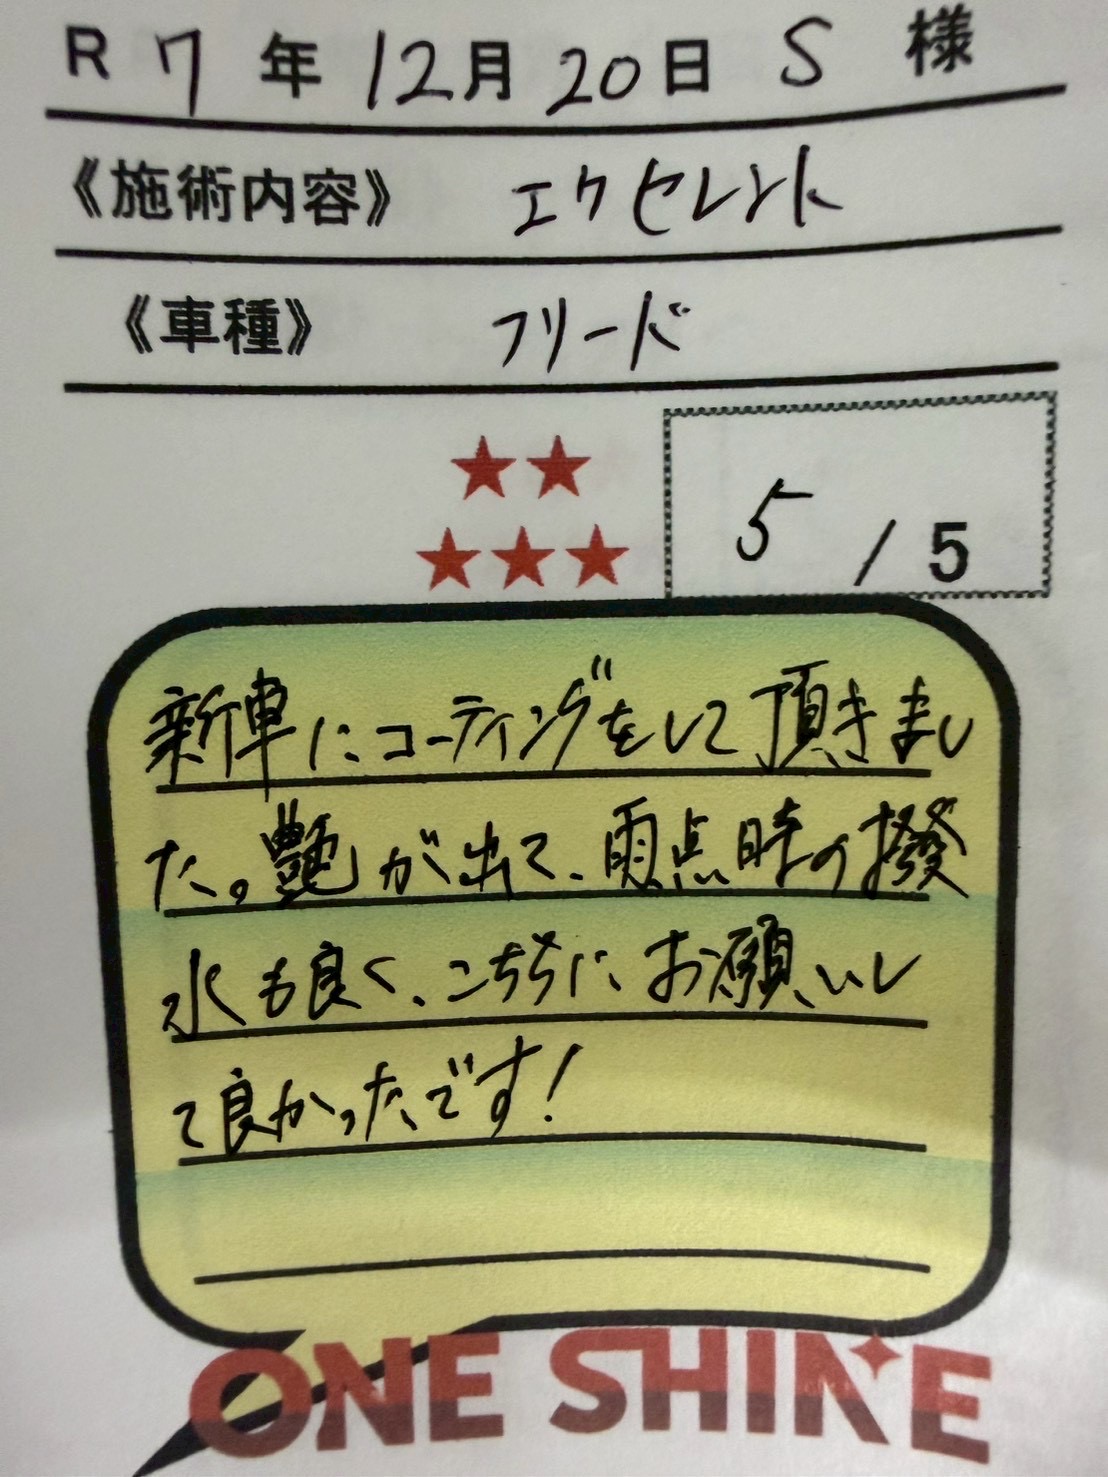 R 7年 12月 20日 S 様
《施術内容》 エクセレント
《車種》 フリード
★★
★★★ 5 / 5
新車にコーティングをして頂きまし
た。艶が出て、雨点時の撥
水も良く、こちらに、お願いし
て良かったです！
ONE SHINE